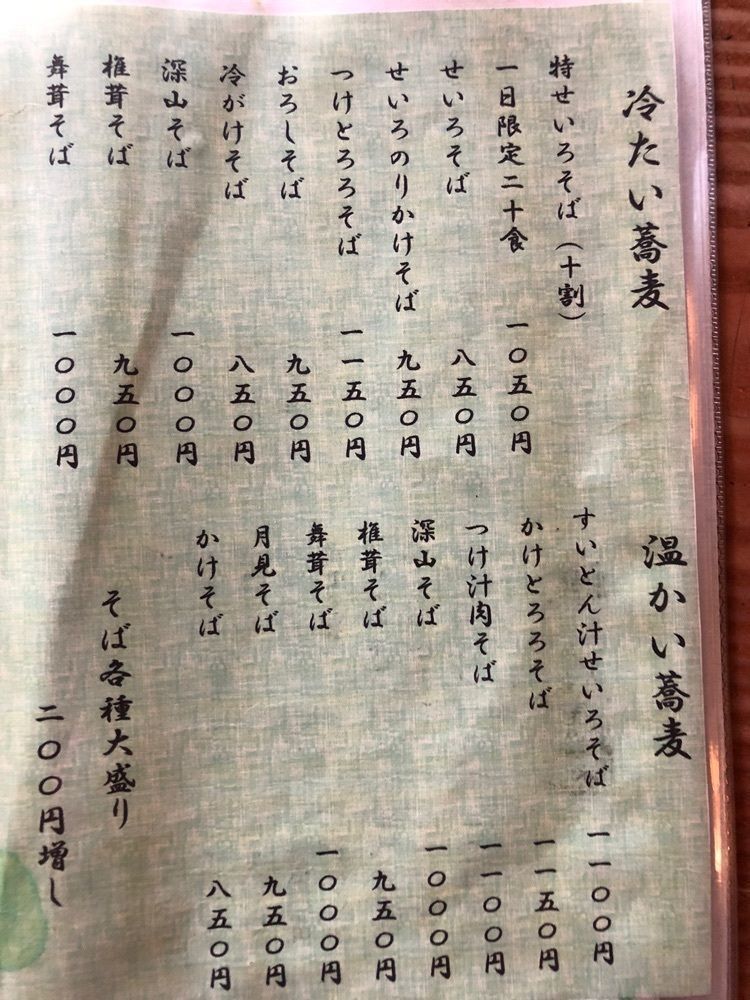 冷たい蕎麦
特せいろそば(十割)
一日限定二十食 一〇五〇円
せいろそば 八五〇円
せいろのりかけそば 九五〇円
つけとろろそば 一一五〇円
おろしそば 九五〇円
冷がけそば 八五〇円
深山そば 一〇〇〇円
椎茸そば 九五〇円
舞茸そば 一〇〇〇円
温かい蕎麦
すいとん汁せいろそば 一一〇〇円
かけとろろそば 一一五〇円
つけ汁肉そば 一一〇〇円
深山そば 一〇〇〇円
椎茸そば 九五〇円
舞茸そば 一〇〇〇円
月見そば 九五〇円
かけそば 八五〇円
そば各種大盛り
二〇〇円増し